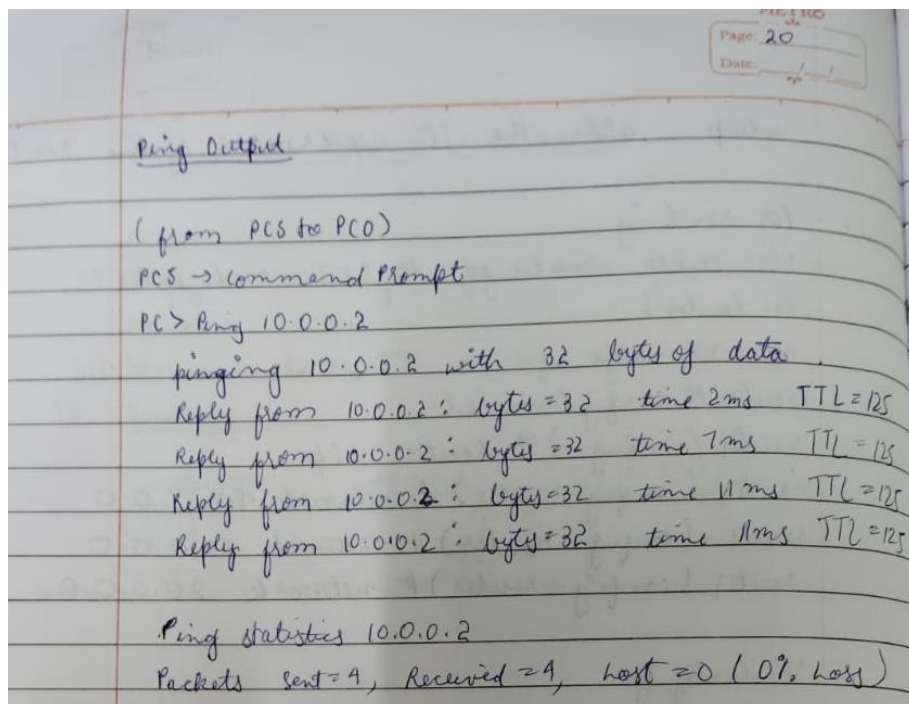 METRO
Page: 20
Date: / /
Ping Output
(from PC5 to PC0)
PC5 → Command Prompt
PC> Ping 10.0.0.2
pinging 10.0.0.2 with 32 bytes of data.
Reply from 10.0.0.2: bytes=32 time 2ms TTL=125
Reply from 10.0.0.2: bytes=32 time 7ms TTL=125
Reply from 10.0.0.2: bytes=32 time 11ms TTL=125
Reply from 10.0.0.2: bytes=32 time 11ms TTL=125
Ping statistics 10.0.0.2
Packets sent=4, Received=4, Lost=0 (0% Loss)